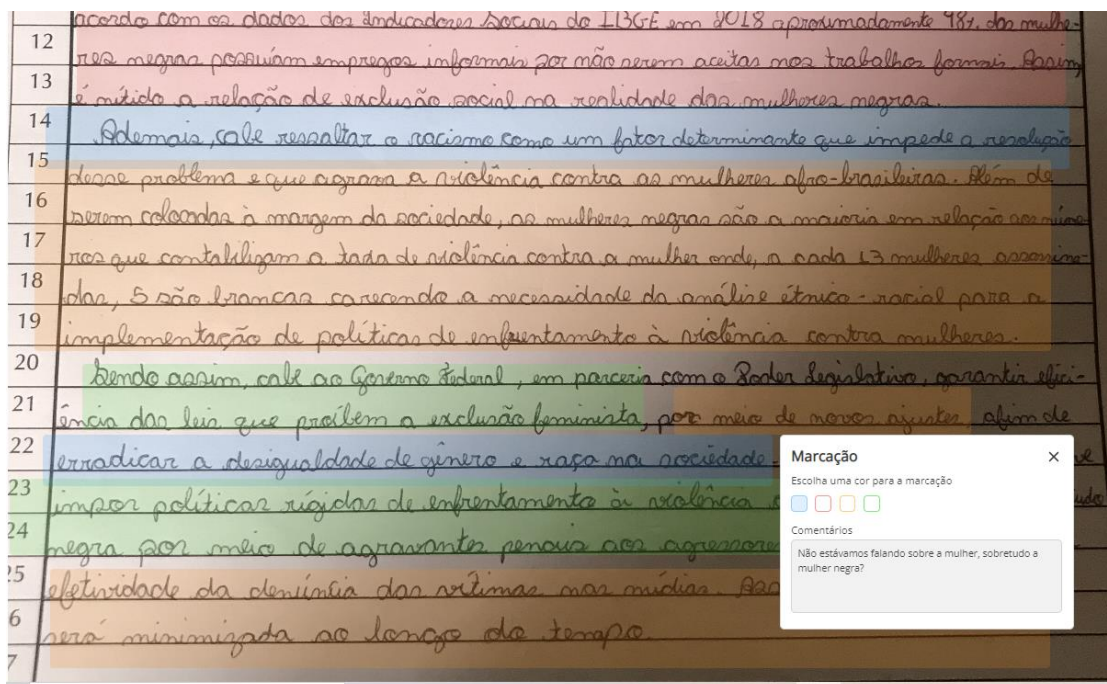 acordo com os dados dos Indicadores Sociais do IBGE em 2018 aproximadamente 48% das mulhe-
12 res negras possuíam empregos informais por não serem aceitas nos trabalhos formais. Assim,
13 é nítido a relação de exclusão social na realidade das mulheres negras.
14 Ademais, cale ressaltar o racismo como um fator determinante que impede a resolução
15 desse problema e que agrava a violência contra as mulheres afro-brasileiras. Além de
16 serem colocadas à margem da sociedade, as mulheres negras são a maioria em relação aos núme-
17 ros que contabiligam a tada de violência contra a mulher onde, a cada 13 mulheres assassina-
18 das, 5 são brancas carecendo a necessidade da análise étnico-racial para a
19 implementação de políticas de enfrentamento à violência contra mulheres.
20 Sendo assim, cabe ao Governo Federal, em parceria com o Poder Legislativo, garantir efici-
21 ência das leis que proíbem a exclusão feminista, por meio de novos ajustes, afim de
22 erradicar a desigualdade de gênero e raça na sociedade.
23 impor políticas rígidas de enfrentamento à violência
24 negra por meio de agravantes penais aos agressores
25 efetividade da denúncia das vítimas nas mídias.
6 será minimizada ao longo do tempo.
7
Marcação
Escolha uma cor para a marcação
Comentários
Não estávamos falando sobre a mulher, sobretudo a
mulher negra?